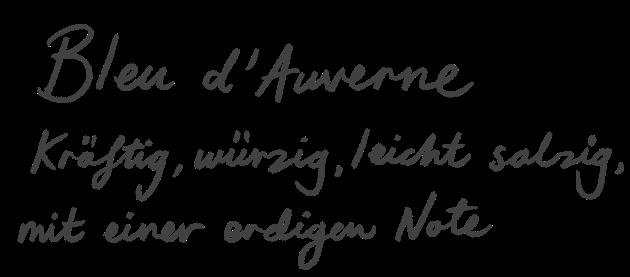 Bleu d'Auverne
Kräftig, würzig, leicht salzig,
mit einer erdigen Note